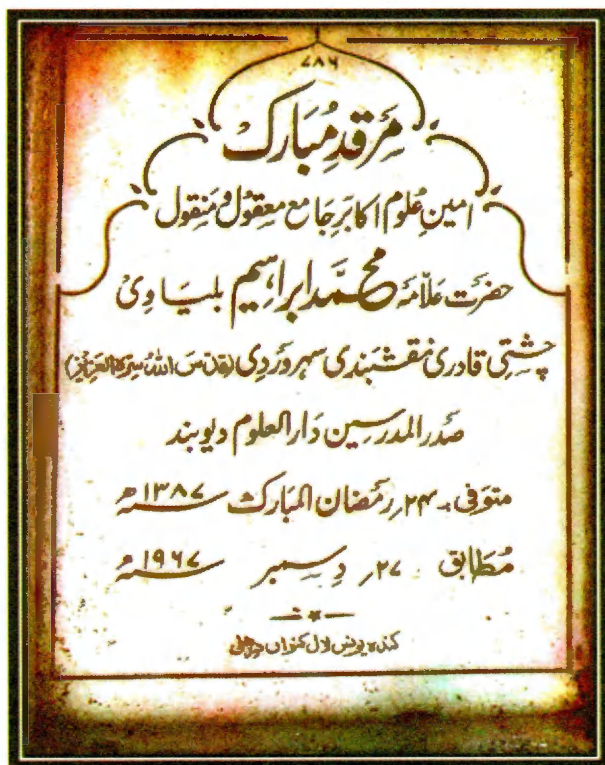 ۷۸۶
مَرقدِ مُبارک
امینِ عُلوم اکابر جَامع معقول و مَنقول
حضرَت عَلّامہ محمَّد ابراہیم بلیَاوِی
چشتِی قادری نقشبندی سہروردِی (قدّسَ اللہُ سِرّہُ العزیز)
صدر المدرسین دَار العلوم دیوبند
متوَفی ۲۴؍ رمَضان المبَارک سنہ ۱۳۸۷ھ
مُطابق ۲۷؍ دِسمبر سنہ ۱۹۶۷ء
کندہ یونس لال کنواں دہلی